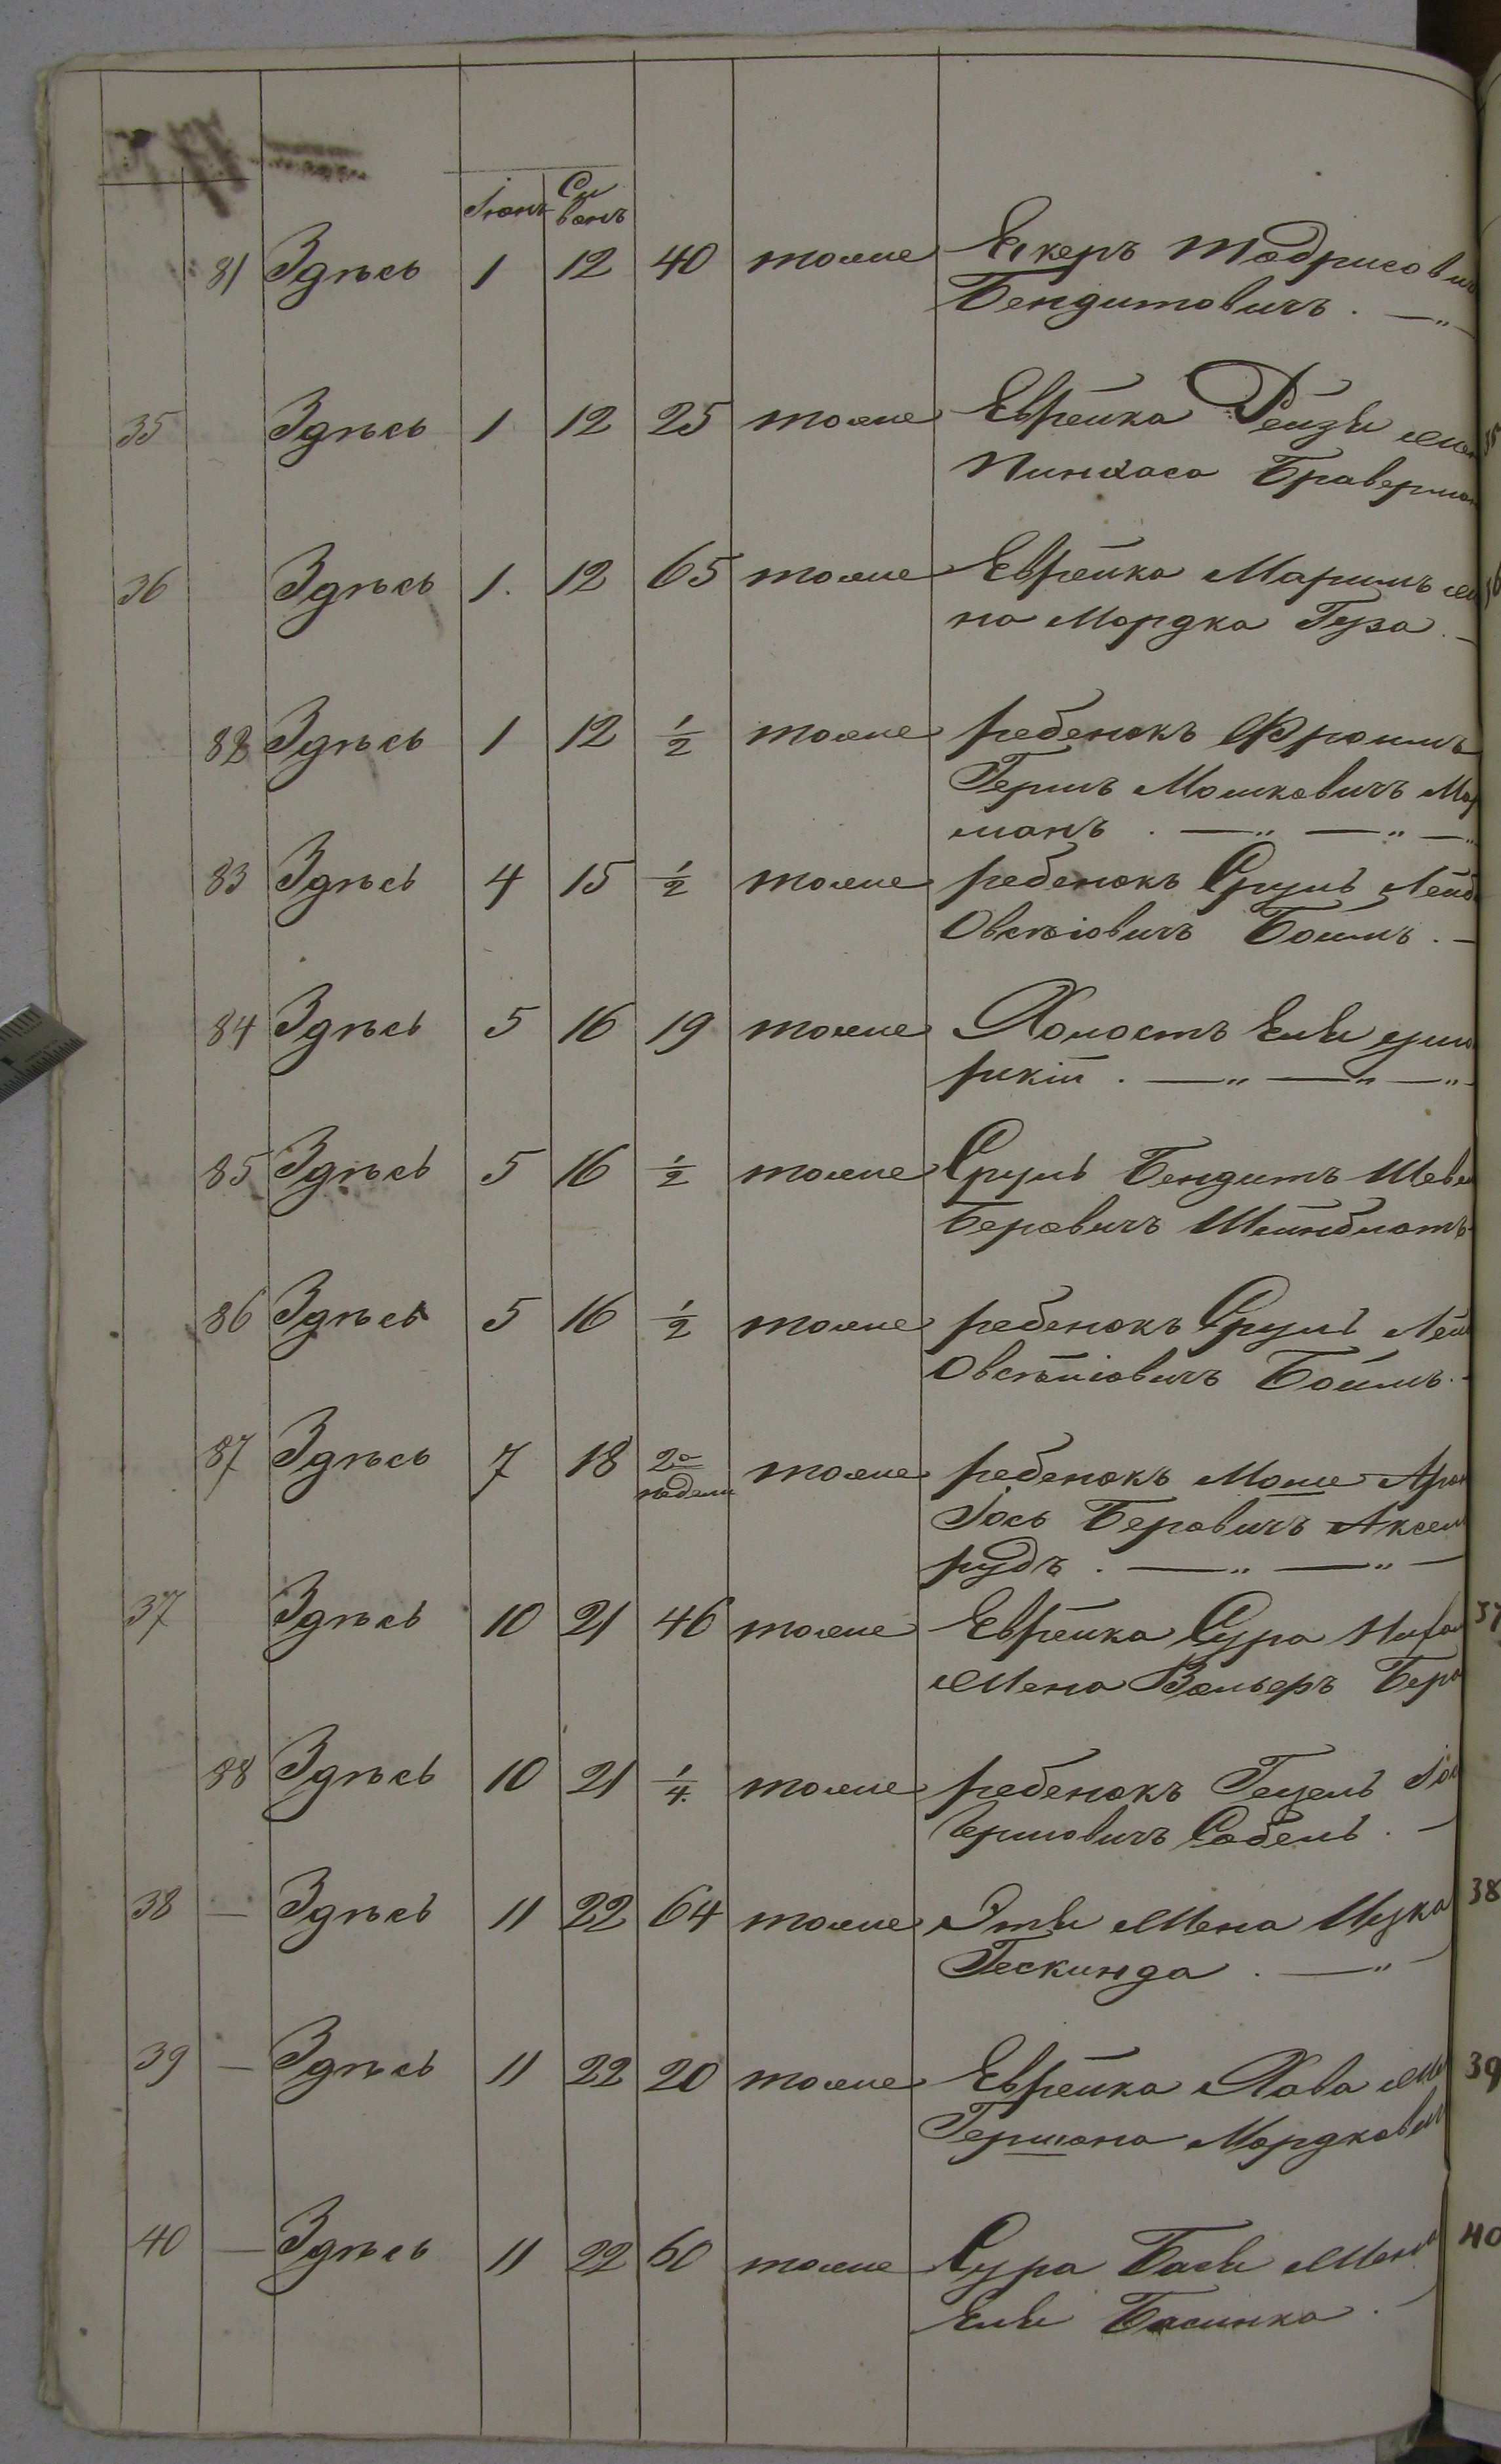 Іюнь Си
вонъ
81 Здѣсь 1 12 40 тоже Екеръ Тодрисович
Бендитовичъ . — „ —
35 Здѣсь 1 12 25 тоже Еврейка Рейзи жен
Пинхаса Браверман
36 Здѣсь 1. 12 65 тоже Еврейка Маримъ же
на Мордка Гуза . —
82 Здѣсь 1 12 1/2 тоже ребенокъ Фроимъ
Гершъ Мошковичъ Мар
манъ . — „ — „ — „
83 Здѣсь 4 15 1/2 тоже ребенокъ Сруль Лейб
Овсѣіовичъ Боимъ . —
84 Здѣсь 5 16 19 тоже Холостъ Ели
рикій . — „ — „ — „ —
85 Здѣсь 5 16 1/2 тоже Сруль Бендитъ Шев
Беровичъ Шейнблатъ
86 Здѣсь 5 16 1/2 тоже ребенокъ Сруль Лей
Овсѣйіовичъ Боймъ . —
87 Здѣсь 7 18 2а тоже ребенокъ Моше Арон
недели
Іось Беровичъ Аксел
рудъ . — „ — „ —
37 Здѣсь 10 21 46 тоже Еврейка Сура 37
Жена Вольфъ Бера
88 Здѣсь 10 21 1/4. тоже ребенокъ Гецель Іос
Гершовичъ Собель . —
38 — Здѣсь 11 22 64 тоже Эти Жена Ицка 38
Гескинда . — „ —
39 — Здѣсь 11 22 20 тоже Еврейка Хава Же 39
Гершона Мордкови
40 — Здѣсь 11 22 60 тоже Сура Баси Жена 40
Ели Басинка . —